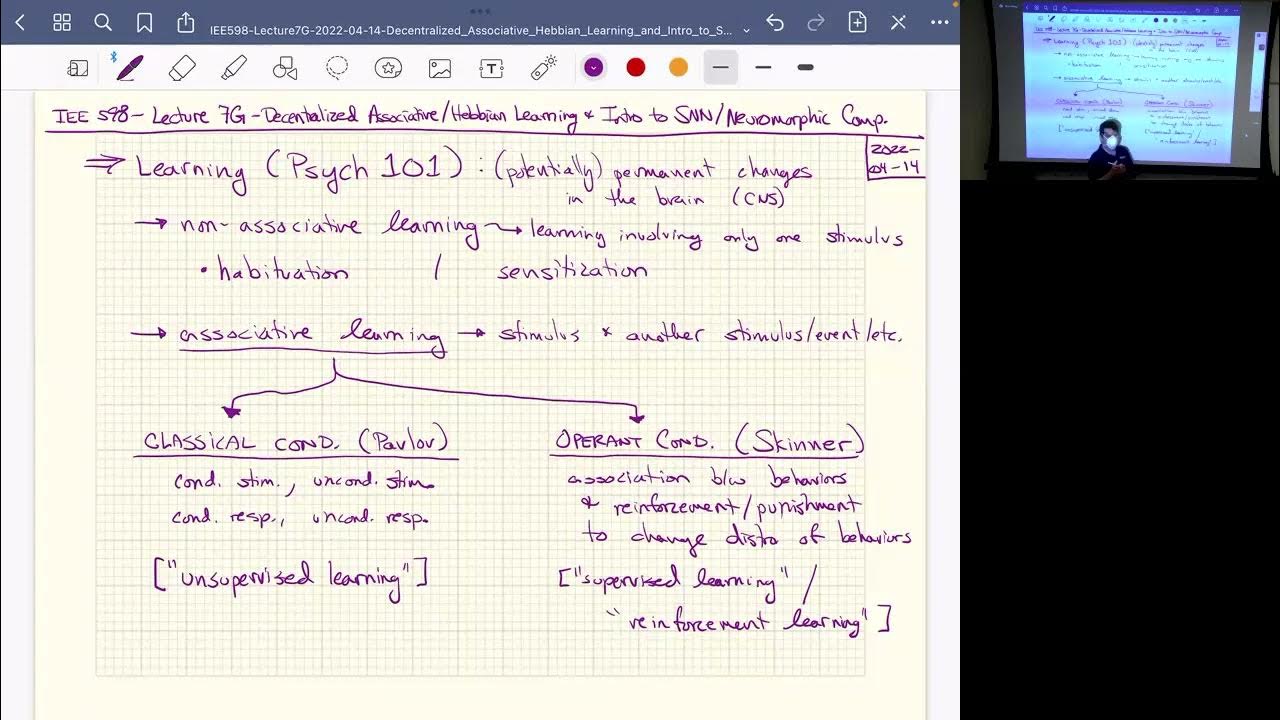 IEE598-Lecture7G-2022-04-14-Decentralized_Associative_Hebbian_Learning_and_Intro_to_S...
IEE 598- Lecture 7G - Decentralized Associative/Hebbian Learning & Intro to SNN/Neuromorphic Comp.
2022-
04-14
⇒ Learning (Psych 101) : (potentially) permanent changes
in the brain (CNS)
→ non-associative learning → learning involving only one stimulus
• habituation / sensitization
→ associative learning → stimulus & another stimulus/event/etc.
CLASSICAL COND. (Pavlov)
cond. stim., uncond. stim.
cond. resp., uncond. resp.
["unsupervised learning"]
OPERANT COND. (Skinner)
association b/w behaviors
& reinforcement/punishment
to change distro of behaviors
["supervised learning" /
"reinforcement learning"]